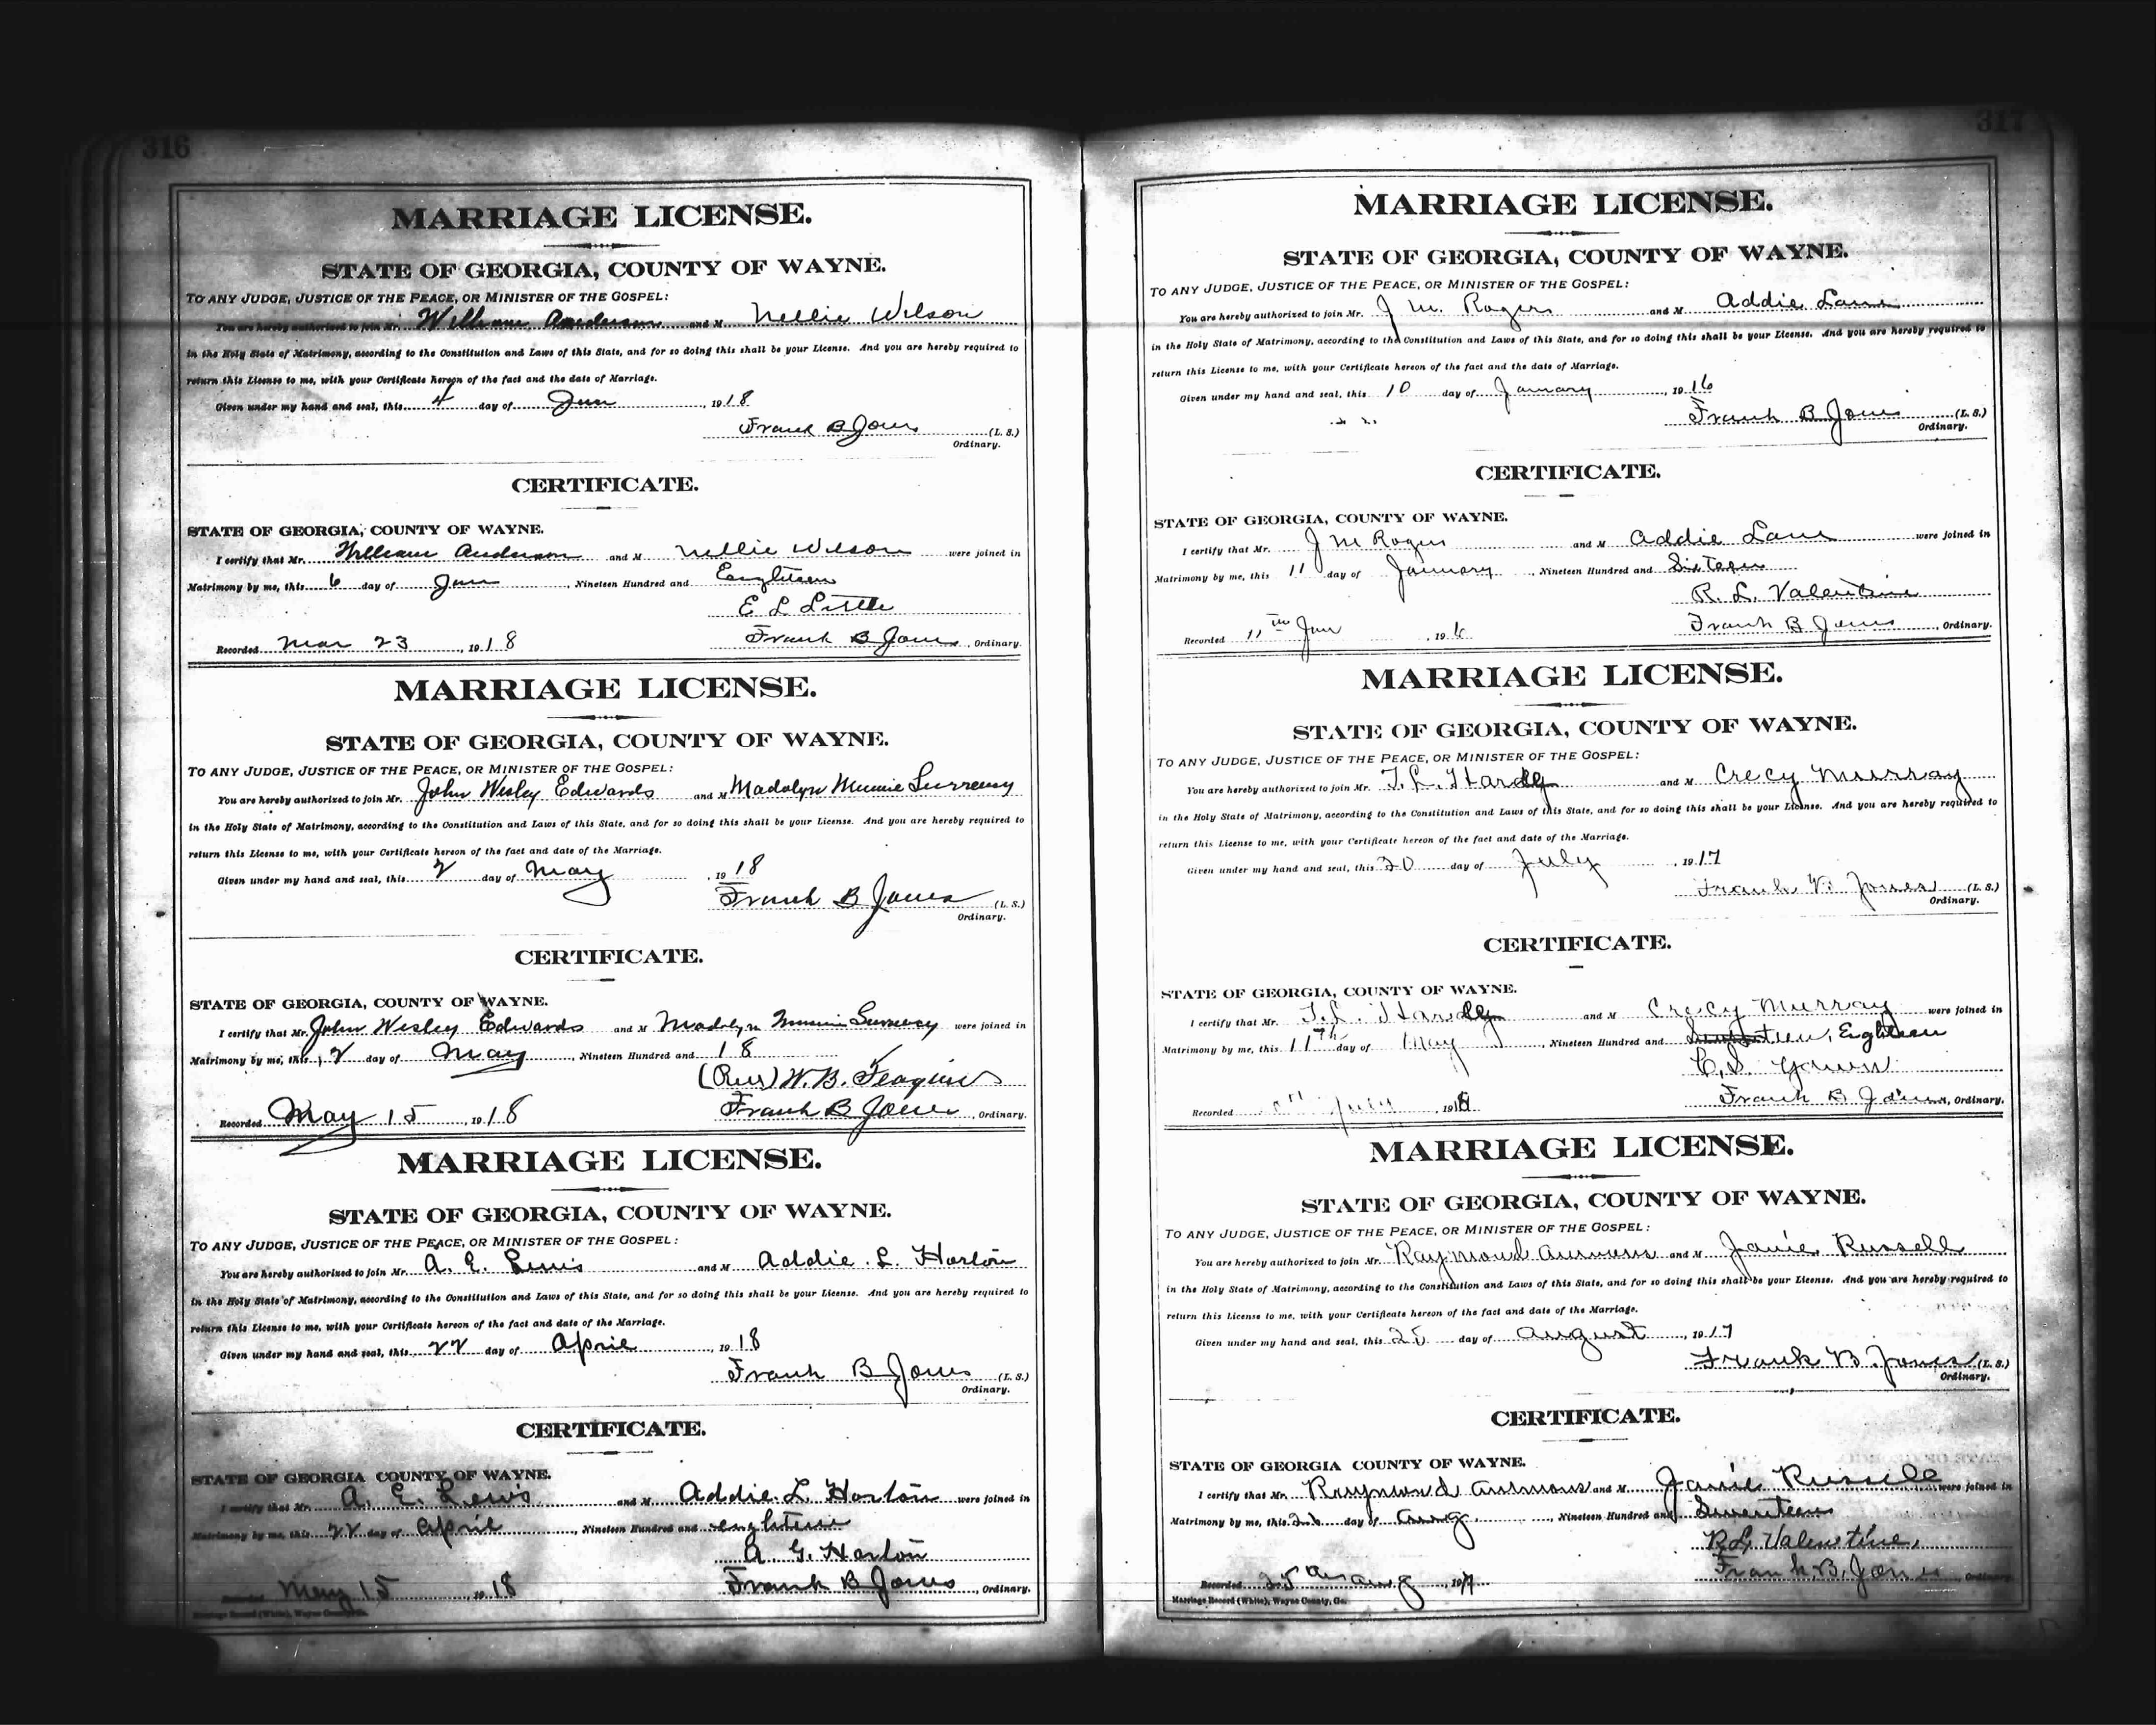 316
MARRIAGE LICENSE.
STATE OF GEORGIA, COUNTY OF WAYNE.
TO ANY JUDGE, JUSTICE OF THE PEACE, OR MINISTER OF THE GOSPEL:
You are hereby authorized to join Mr. William Anderson and M Nellie Wilson
in the Holy State of Matrimony, according to the Constitution and Laws of this State, and for so doing this shall be your License. And you are hereby required to
return this License to me, with your Certificate hereon of the fact and the date of Marriage.
Given under my hand and seal, this 4 day of Jan, 1918
Frank B Jones (L. S.)
Ordinary.
CERTIFICATE.
STATE OF GEORGIA, COUNTY OF WAYNE.
I certify that Mr. William Anderson and M Nellie Wilson were joined in
Matrimony by me, this 6 day of Jan, Nineteen Hundred and Eighteen
E L Little
Recorded Mar 23, 1918 Frank B Jones, Ordinary.
MARRIAGE LICENSE.
STATE OF GEORGIA, COUNTY OF WAYNE.
TO ANY JUDGE, JUSTICE OF THE PEACE, OR MINISTER OF THE GOSPEL:
You are hereby authorized to join Mr. John Wesley Edwards and M Madolyn Minnie Surrency
in the Holy State of Matrimony, according to the Constitution and Laws of this State, and for so doing this shall be your License. And you are hereby required to
return this License to me, with your Certificate hereon of the fact and date of the Marriage.
Given under my hand and seal, this 2 day of May, 1918
Frank B Jones (L. S.)
Ordinary.
CERTIFICATE.
STATE OF GEORGIA, COUNTY OF WAYNE.
I certify that Mr. John Wesley Edwards and M Madolyn Minnie Surrency were joined in
Matrimony by me, this 2 day of May, Nineteen Hundred and 18
(Rev) W. B. Feagins
Recorded May 15, 1918 Frank B Jones, Ordinary.
MARRIAGE LICENSE.
STATE OF GEORGIA, COUNTY OF WAYNE.
TO ANY JUDGE, JUSTICE OF THE PEACE, OR MINISTER OF THE GOSPEL:
You are hereby authorized to join Mr. A. E. Lewis and M Addie. L. Horton
in the Holy State of Matrimony, according to the Constitution and Laws of this State, and for so doing this shall be your License. And you are hereby required to
return this License to me, with your Certificate hereon of the fact and date of the Marriage.
Given under my hand and seal, this 22 day of April, 1918
Frank B Jones (L. S.)
Ordinary.
CERTIFICATE.
STATE OF GEORGIA COUNTY OF WAYNE.
I certify that Mr. A. E. Lewis and M Addie. L. Horton were joined in
Matrimony by me, this 22 day of April, Nineteen Hundred and eighteen
A. G. Horton
Recorded May 15, 1918 Frank B Jones, Ordinary.
Marriage Record (White), Wayne County, Ga.
317
MARRIAGE LICENSE.
STATE OF GEORGIA, COUNTY OF WAYNE.
TO ANY JUDGE, JUSTICE OF THE PEACE, OR MINISTER OF THE GOSPEL:
You are hereby authorized to join Mr. J M. Rogers and M Addie Lane
in the Holy State of Matrimony, according to the Constitution and Laws of this State, and for so doing this shall be your License. And you are hereby required to
return this License to me, with your Certificate hereon of the fact and the date of Marriage.
Given under my hand and seal, this 10 day of January, 1916
Frank B Jones (L. S.)
Ordinary.
CERTIFICATE.
STATE OF GEORGIA, COUNTY OF WAYNE.
I certify that Mr. J M Rogers and M Addie Lane were joined in
Matrimony by me, this 11 day of January, Nineteen Hundred and Sixteen
R. L. Valentine
Recorded 11th Jan, 19 Frank B Jones, Ordinary.
MARRIAGE LICENSE.
STATE OF GEORGIA, COUNTY OF WAYNE.
TO ANY JUDGE, JUSTICE OF THE PEACE, OR MINISTER OF THE GOSPEL:
You are hereby authorized to join Mr. T. L. Hardy and M Crecy Murray
in the Holy State of Matrimony, according to the Constitution and Laws of this State, and for so doing this shall be your License. And you are hereby required to
return this License to me, with your Certificate hereon of the fact and date of the Marriage.
Given under my hand and seal, this 30 day of July, 1917
Frank B. Jones (L. S.)
Ordinary.
CERTIFICATE.
STATE OF GEORGIA, COUNTY OF WAYNE.
I certify that Mr. T. L. Hardy and M Crecy Murray were joined in
Matrimony by me, this 11th day of May, Nineteen Hundred and Eighteen
C. S.
Recorded July, 1918 Frank B Jones, Ordinary.
MARRIAGE LICENSE.
STATE OF GEORGIA, COUNTY OF WAYNE.
TO ANY JUDGE, JUSTICE OF THE PEACE, OR MINISTER OF THE GOSPEL:
You are hereby authorized to join Mr. Raymond Aummons and M Janie Russell
in the Holy State of Matrimony, according to the Constitution and Laws of this State, and for so doing this shall be your License. And you are hereby required to
return this License to me, with your Certificate hereon of the fact and date of the Marriage.
Given under my hand and seal, this 25 day of August, 1917
Frank B. Jones (L. S.)
Ordinary.
CERTIFICATE.
STATE OF GEORGIA COUNTY OF WAYNE.
I certify that Mr. Raymond Aummons and M Janie Russell were joined in
Matrimony by me, this 26 day of Aug., Nineteen Hundred and Seventeen
R. L. Valentine,
Recorded Aug, 1917 Frank. B. Jones Ordinary.
Marriage Record (White), Wayne County, Ga.